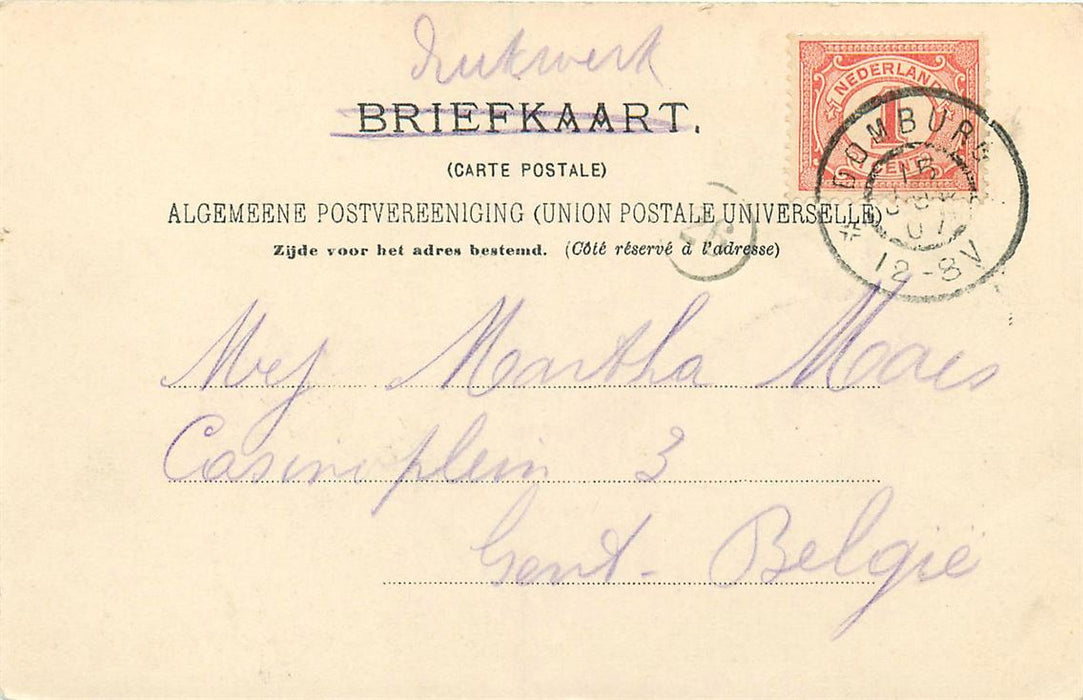 drukwerk
BRIEFKAART.
(CARTE POSTALE)
ALGEMEENE POSTVEREENIGING (UNION POSTALE UNIVERSELLE)
Zijde voor het adres bestemd. (Côté réservé à l'adresse)
NEDERLAND
1
CENT
DOMBURG
15
01
12-8V
Mej Martha Maes
Casinoplein 3
Gent - België